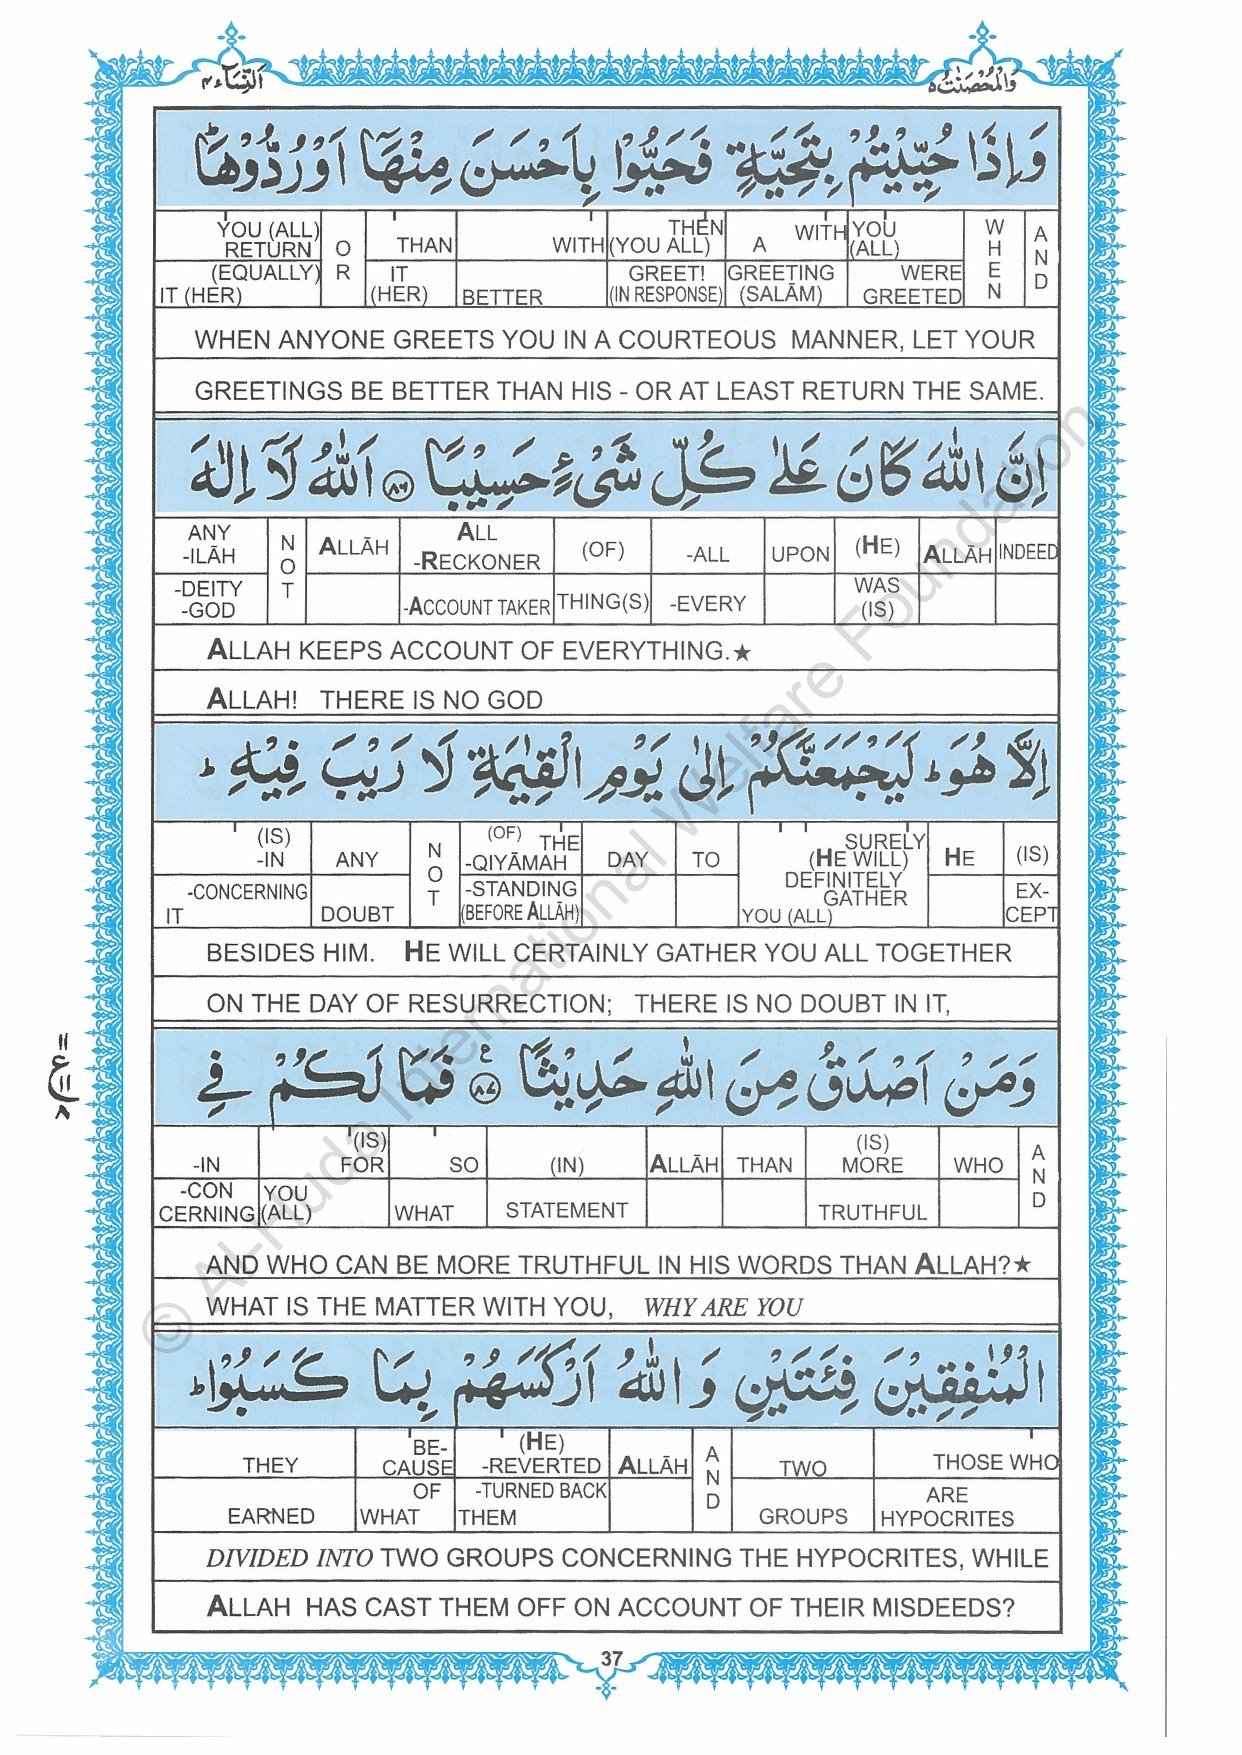 اَلنِّسَآء ٤
وَالْمُحْصَنٰتُ ٥
وَاِذَا حُيِّيْتُمْ بِتَحِيَّةٍ فَحَيُّوْا بِاَحْسَنَ مِنْهَآ اَوْ رُدُّوْهَا ؕ
YOU (ALL) RETURN (EQUALLY) IT (HER) | OR | THAN IT (HER) | WITH BETTER | THEN (YOU ALL) GREET! (IN RESPONSE) | WITH A GREETING (SALĀM) | YOU (ALL) WERE GREETED | WHEN | AND
WHEN ANYONE GREETS YOU IN A COURTEOUS MANNER, LET YOUR
GREETINGS BE BETTER THAN HIS - OR AT LEAST RETURN THE SAME.
اِنَّ اللّٰهَ كَانَ عَلٰى كُلِّ شَىْءٍ حَسِيْبًا ٨٦ اَللّٰهُ لَآ اِلٰهَ
ANY -ILĀH -DEITY -GOD | NOT | ALLĀH | ALL -RECKONER -ACCOUNT TAKER | (OF) THING(S) | -ALL -EVERY | UPON | (HE) WAS (IS) | ALLĀH | INDEED
ALLAH KEEPS ACCOUNT OF EVERYTHING.★
ALLAH! THERE IS NO GOD
اِلَّا هُوَ ؕ لَيَجْمَعَنَّكُمْ اِلٰى يَوْمِ الْقِيٰمَةِ لَا رَيْبَ فِيْهِ ؕ
(IS) -IN -CONCERNING IT | ANY DOUBT | NOT | (OF) THE -QIYĀMAH -STANDING (BEFORE ALLĀH) | DAY | TO | SURELY (HE WILL) DEFINITELY GATHER YOU (ALL) | HE | (IS) EX-CEPT
BESIDES HIM. HE WILL CERTAINLY GATHER YOU ALL TOGETHER
ON THE DAY OF RESURRECTION; THERE IS NO DOUBT IN IT,
وَمَنْ اَصْدَقُ مِنَ اللّٰهِ حَدِيْثًا ٨٧ ع فَمَا لَكُمْ فِى
١١ ع ١١ ٨
-IN -CON CERNING | (IS) FOR YOU (ALL) | SO WHAT | (IN) STATEMENT | ALLĀH | THAN | (IS) MORE TRUTHFUL | WHO | AND
AND WHO CAN BE MORE TRUTHFUL IN HIS WORDS THAN ALLAH?★
WHAT IS THE MATTER WITH YOU, WHY ARE YOU
الْمُنٰفِقِيْنَ فِئَتَيْنِ وَاللّٰهُ اَرْكَسَهُمْ بِمَا كَسَبُوْا ؕ
THEY EARNED | BE-CAUSE OF WHAT | (HE) -REVERTED -TURNED BACK THEM | ALLĀH | AND | TWO GROUPS | THOSE WHO ARE HYPOCRITES
DIVIDED INTO TWO GROUPS CONCERNING THE HYPOCRITES, WHILE
ALLAH HAS CAST THEM OFF ON ACCOUNT OF THEIR MISDEEDS?
37
© Al-Huda International Welfare Foundation